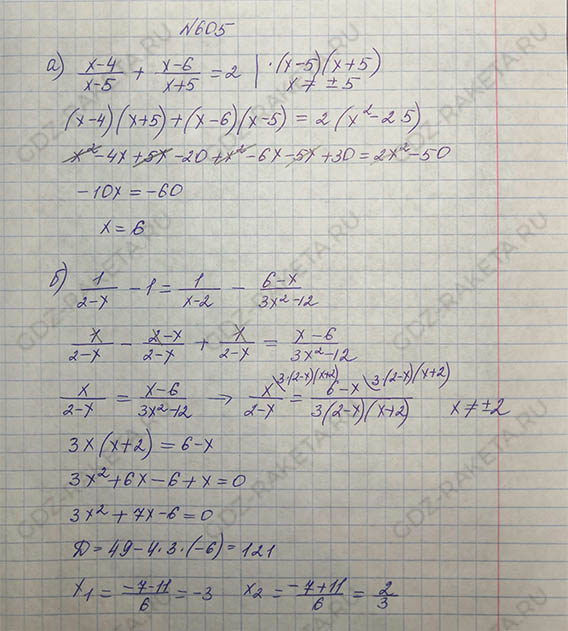 №605
а) \frac{x-4}{x-5} + \frac{x-6}{x+5} = 2 | ·(x-5)(x+5)
x ≠ ± 5
(x-4)(x+5)+(x-6)(x-5) = 2(x²-25)
x²-4x+5x-20+x²-6x-5x+30=2x²-50
-10x=-60
x=6
б) \frac{1}{2-x} -1 = \frac{1}{x-2} - \frac{6-x}{3x²-12}
\frac{x}{2-x} - \frac{2-x}{2-x} + \frac{x}{2-x} = \frac{x-6}{3x²-12}
\frac{x}{2-x} = \frac{x-6}{3x²-12} → \frac{x}{2-x}\3·(2-x)(x+2) = \frac{6-x}{3(2-x)(x+2)}\3·(2-x)(x+2) x≠±2
3x(x+2)=6-x
3x²+6x-6+x=0
3x²+7x-6=0
Д=49-4·3·(-6)=121
x₁=\frac{-7-11}{6}=-3 x₂=\frac{-7+11}{6}=\frac{2}{3}
GDZ-RAKETA.RU